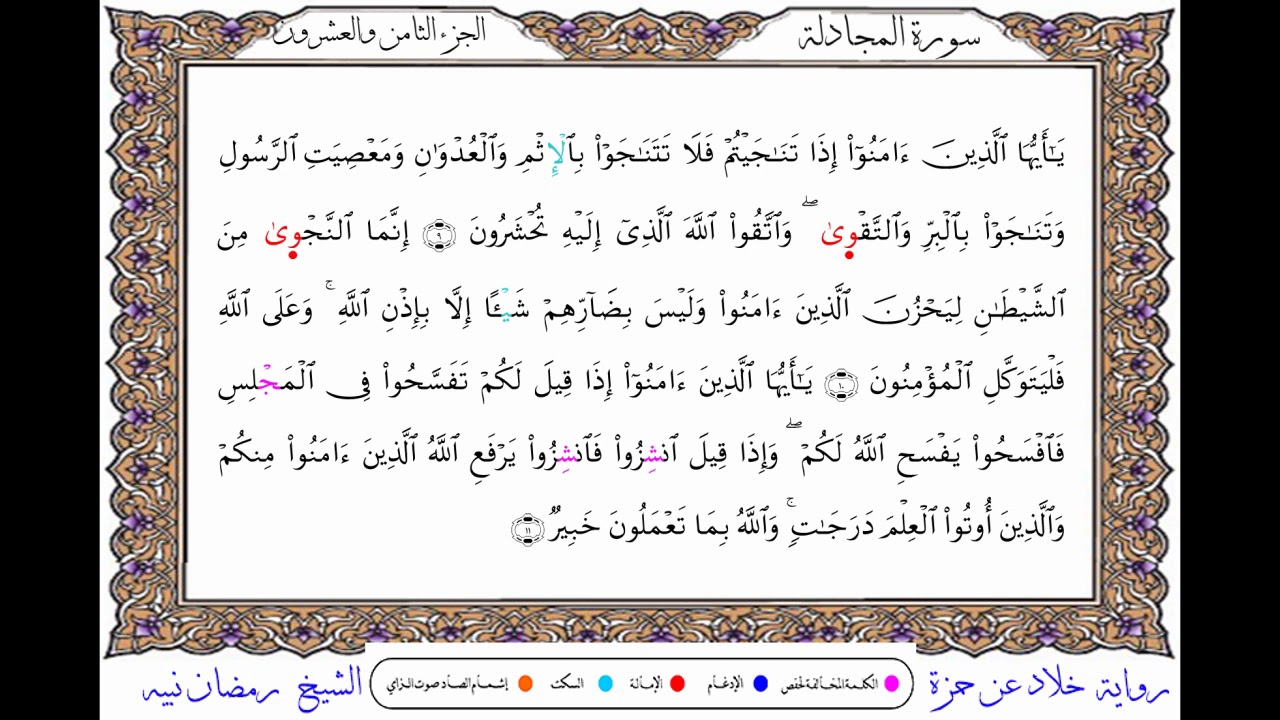 سورة المجادلة
الجزء الثامن والعشرون
يَـٰٓأَيُّهَا ٱلَّذِينَ ءَامَنُوٓا۟ إِذَا تَنَـٰجَيْتُمْ فَلَا تَتَنَـٰجَوْا۟ بِٱلْإِثْمِ وَٱلْعُدْوَٰنِ وَمَعْصِيَتِ ٱلرَّسُولِ
وَتَنَـٰجَوْا۟ بِٱلْبِرِّ وَٱلتَّقْوِىٰ ۖ وَٱتَّقُوا۟ ٱللَّهَ ٱلَّذِىٓ إِلَيْهِ تُحْشَرُونَ ٩ إِنَّمَا ٱلنَّجْوِىٰ مِنَ
ٱلشَّيْطَـٰنِ لِيَحْزُنَ ٱلَّذِينَ ءَامَنُوا۟ وَلَيْسَ بِضَآرِّهِمْ شَيْـًٔا إِلَّا بِإِذْنِ ٱللَّهِ ۚ وَعَلَى ٱللَّهِ
فَلْيَتَوَكَّلِ ٱلْمُؤْمِنُونَ ١٠ يَـٰٓأَيُّهَا ٱلَّذِينَ ءَامَنُوٓا۟ إِذَا قِيلَ لَكُمْ تَفَسَّحُوا۟ فِى ٱلْمَجْلِسِ
فَٱفْسَحُوا۟ يَفْسَحِ ٱللَّهُ لَكُمْ ۖ وَإِذَا قِيلَ ٱنشِزُوا۟ فَٱنشِزُوا۟ يَرْفَعِ ٱللَّهُ ٱلَّذِينَ ءَامَنُوا۟ مِنكُمْ
وَٱلَّذِينَ أُوتُوا۟ ٱلْعِلْمَ دَرَجَـٰتٍ ۚ وَٱللَّهُ بِمَا تَعْمَلُونَ خَبِيرٌ ١١
رواية خلاد عن حمزة
الكلمة المخالفة لحفص الإدغام الإمالة السكت إشمام الصاد صوت الزاي
الشيخ رمضان نبيه